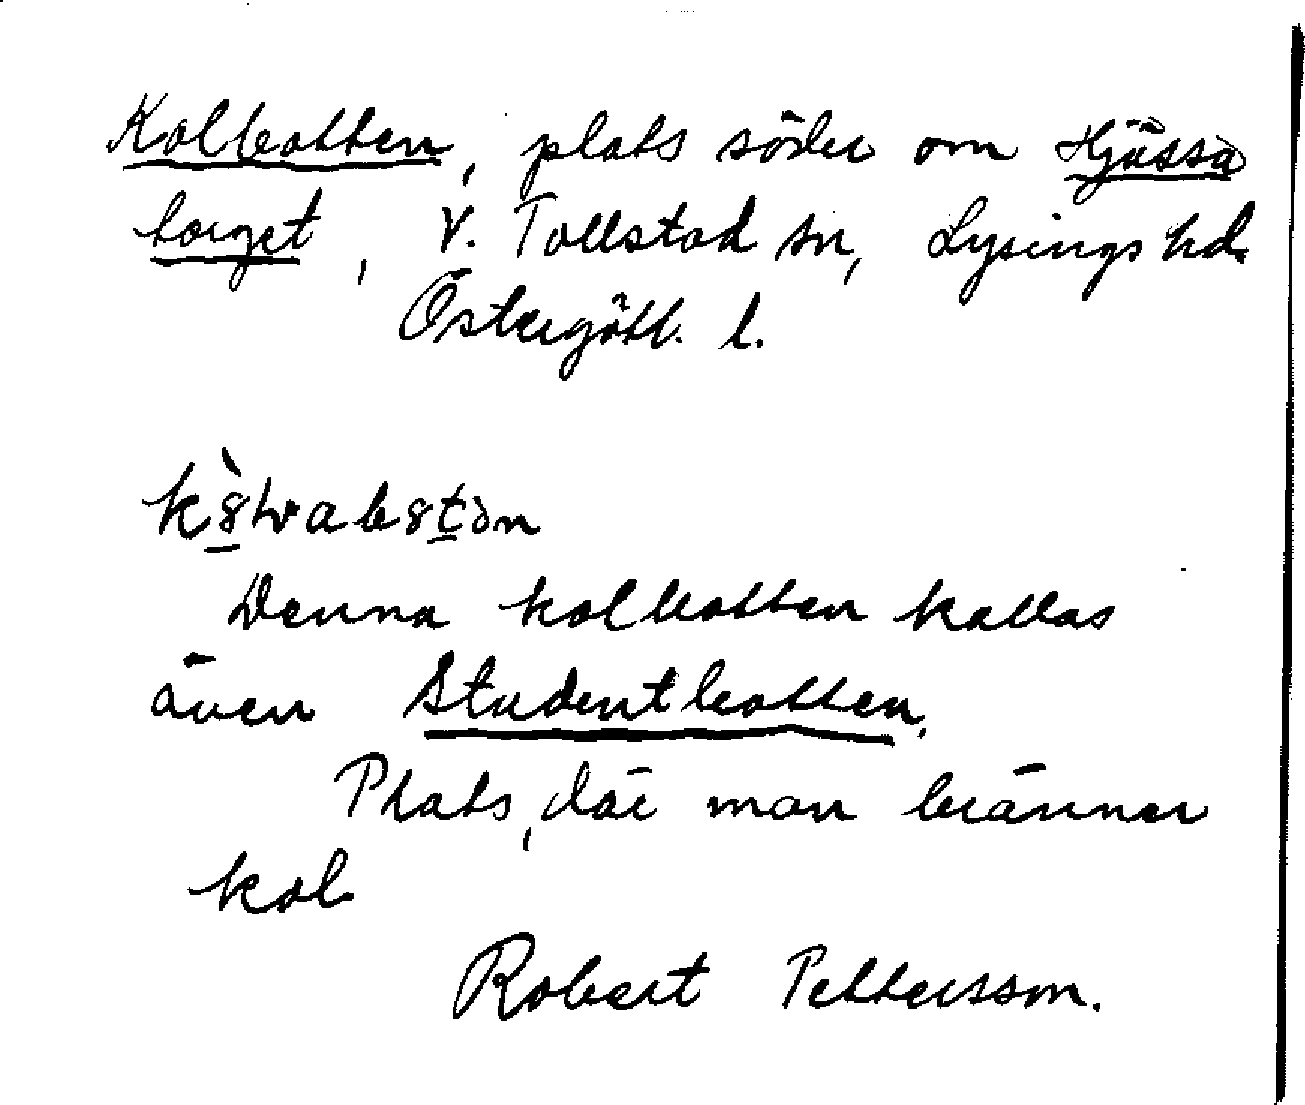 Kolbotten, plats söder om Hjässa
torget, V. Tollstad sn, Lysings hd.
Östergötl. l.
Denna kolbotten kallas
även Studentbotten.
Plats, där man bränner
kol
Robert Pettersson.